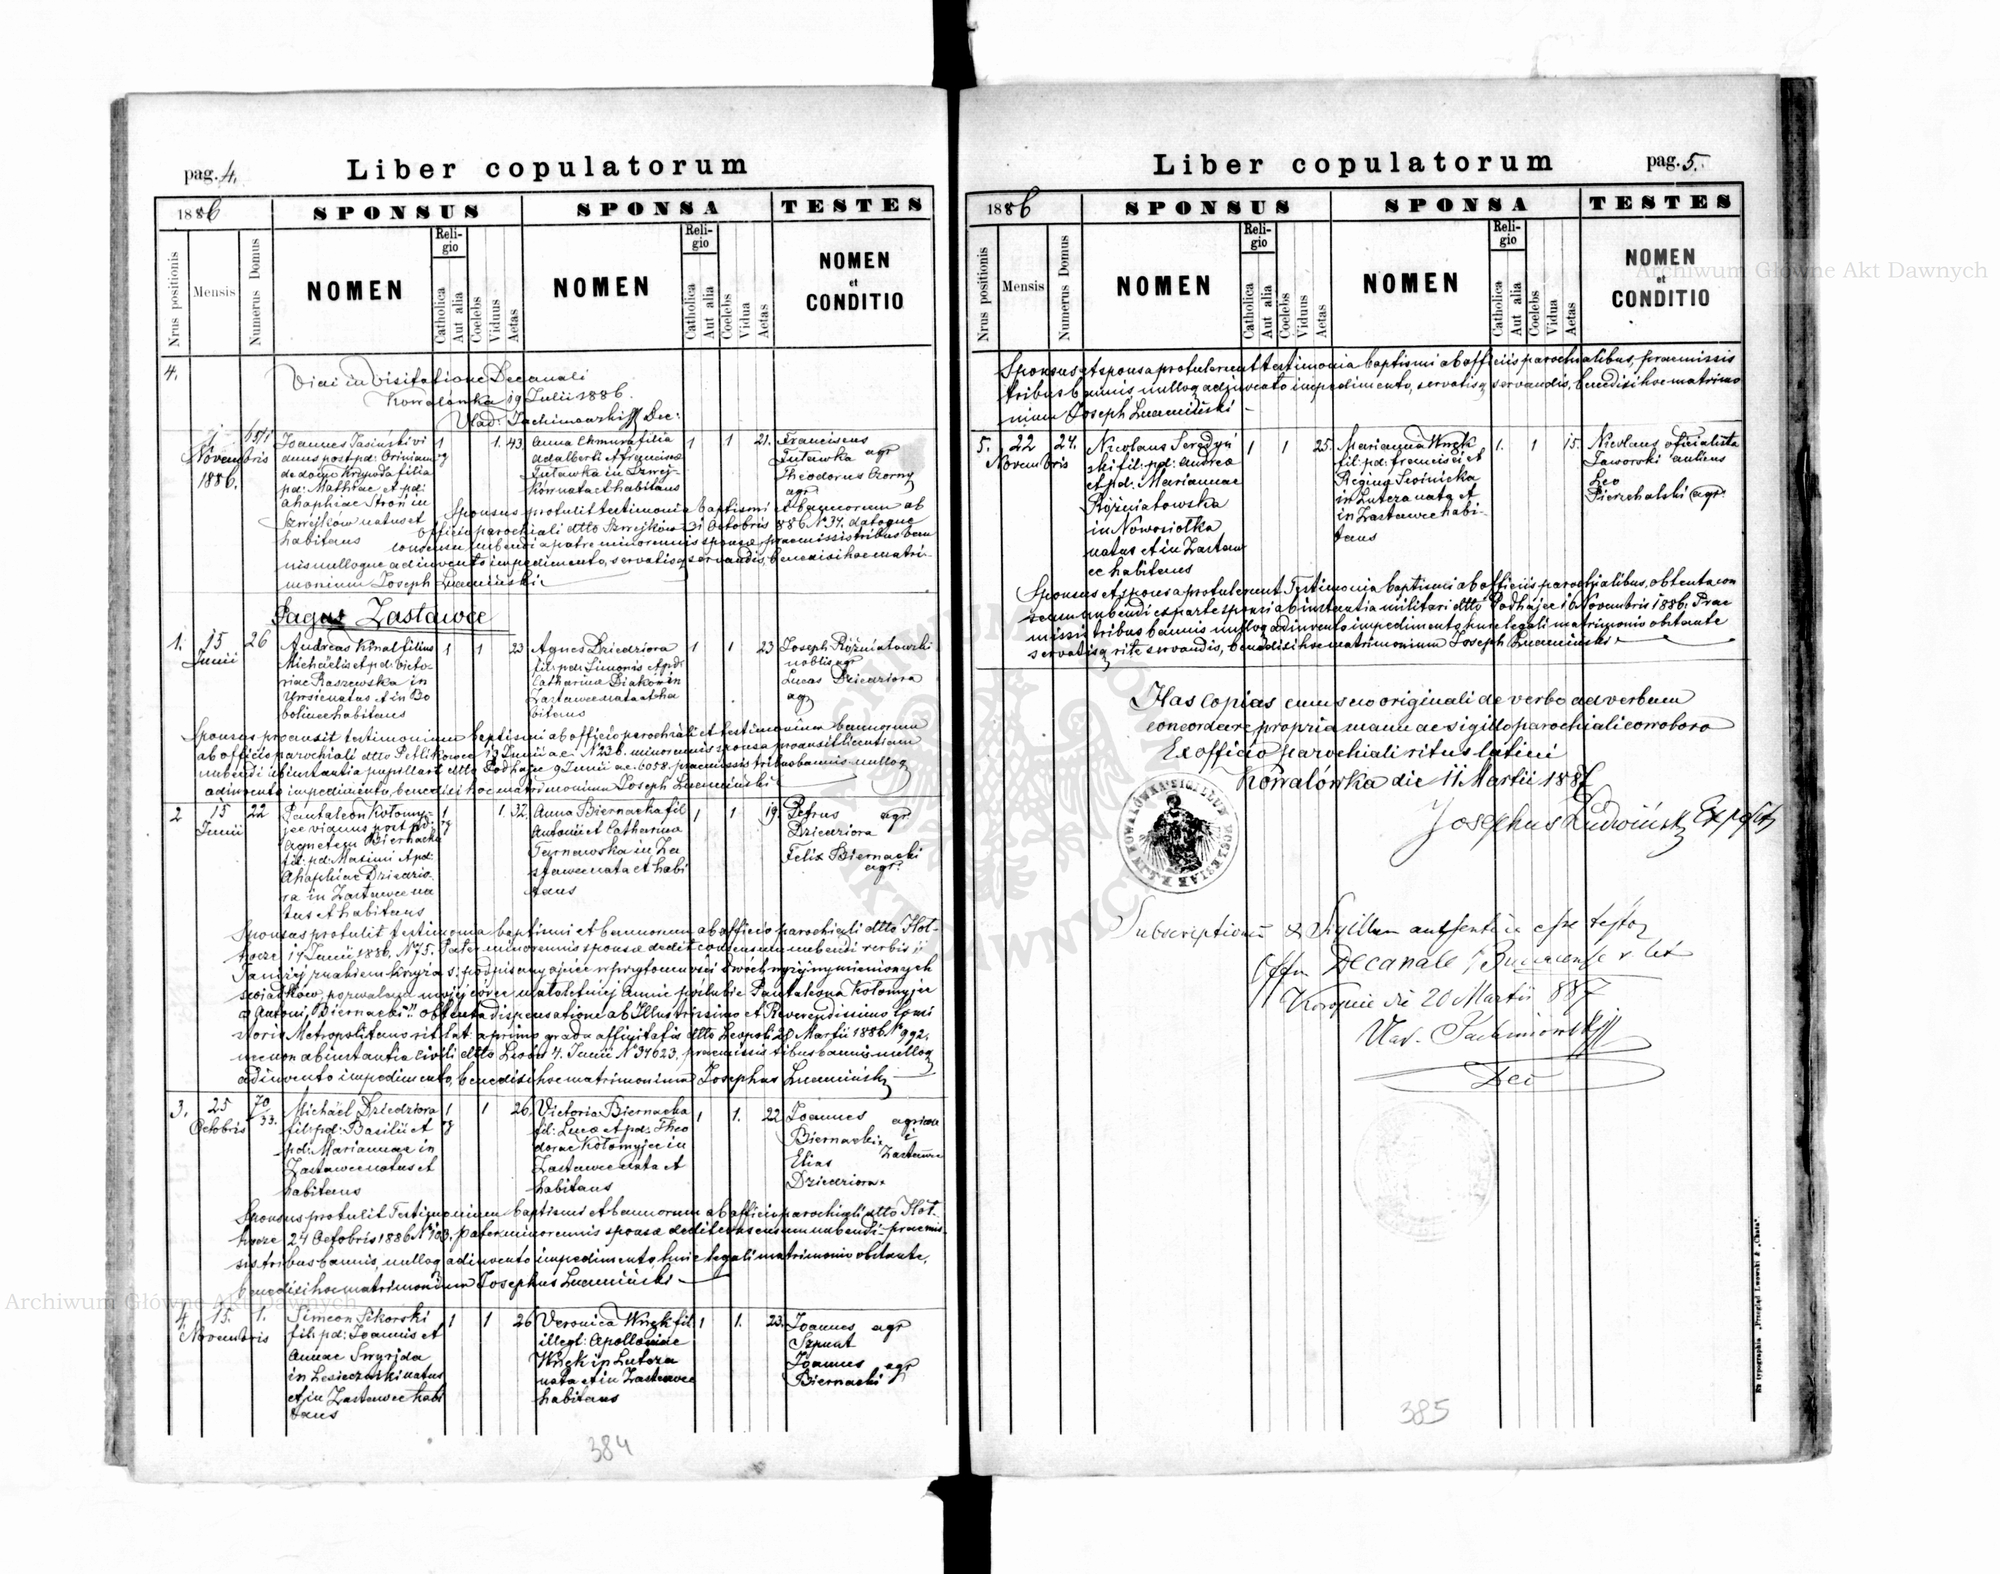 pag. 4.
Liber copulatorum
1886
SPONSUS
SPONSA
TESTES
Nrus positionis
Mensis
Numerus Domus
NOMEN
Religio
Catholica
Aut alia
Coelebs
Viduus
Aetas
NOMEN
Religio
Catholica
Aut alia
Coelebs
Vidua
Aetas
NOMEN
et
CONDITIO
4.
Vidi in Visitatione Decanali
Kowalówka 19 Julii 1886.
Dec:
1
Novembris
1886.
Joannes Jasiński vi
duus post pd:
pd: Mathiae et pd:
Ahaphiae Stroń in
Szwejków natus et
habitans
1
1.
43.
Anna Chmura filia
Adalberti et Franciscae
Tutawka in Szwej-
ków nata et habitans
1
1
21.
Franciscus
Tutawka agr
Theodorus Czorny
agr
Sponsus protulit testimonia baptismi et bannorum ab
officio parochiali dtto Szwejków 31 Octobris 886 N 34. datoque
consensu nubendi a patre minorennis sponsae, praemissis tribus ban
nis nulloque adinvento impedimento, servatisq servandis, benedixi hoc matri-
monium Joseph
Pagus Zastawce
1.
15
Junii
26
Andreas Kinal filius
Michaelis et pd: Victo-
riae Raszewska in
natus et in Bo
habitans
1
1
23
Agnes Dziedziora
fil: pd: Simonis et pd:
Catharina Diakow in
Zastawce nata et ha
bitans
1
1
23
Joseph Rożniatowski
nobilis agr
Lucas Dziedziora
agr
Sponsus procusit testimonium baptismi ab officio parochiali et testimonium bannorum
ab officio parochiali dtto Petlikowce 13 Junii a.c. N 236. minorennis sponsa procusit licentiam
nubendi ab instantia pupillari dtto Podhajce 9 Junii a.c. 6058. praemissis tribus bannis nulloq
adinvento impedimento, benedixi hoc matrimonium Joseph
2
15
Junii
22
Pantaleon Kołomyj-
jec viduus post pd:
Agnetem Biernacka
fil: pd: Maximi et pd:
Ahaphiae Dziedzio-
ra in Zastawce na
tus et habitans
1
1.
32.
Anna Biernacka fil
Antonii et Catharina
Tarnawska in Za
stawce nata et habi
tans
1
1
19.
Petrus agr
Dziedziora
Felix Biernacki
agr.
Sponsus protulit testimonia baptismi et bannorum ab officio parochiali dtto Hol-
hocze 14 Junii 1886. N 75. Pater minorennis sponsae dedit consensum nubendi verbis:
znakiem krzyża podpisany ojciec w przytomności dwóch niżej wymienionych
świadków, pozwalam mojej córce małoletniej Annie poślubić Pantaleona Kołomyjec
Antoni Biernacki". Obtenta dispensatione ab Illustrissimo et Reverendissimo Consi
storio Metropolitano rit lat a primo gradu affinitatis dtto Leopoli 20 Martii 1886 N 992.
necnon ab instantia civili dtto Lwów 4. Junii N 34623, praemissis tribus bannis nulloq
adinvento impedimento, benedixi hoc matrimonium Josephus
3.
25
Octobris
70
33.
Michael Dziedziora
fil: pd: Basilii et
pd: Mariannae in
Zastawce natus et
habitans
1
1
26.
Victoria Biernacka
fil: Lucae et pd: Theo
dorae Kołomyjec in
Zastawce nata et
habitans
1
1.
22
Joannes agricolae
Biernacki
Zastawce
Elias
Dziedziora
Sponsus protulit Testimonium baptismi et bannorum ab officio parochiali dtto Hol-
hocze 24 Octobris 1886 N 103. Pater minorennis sponsae dedit consensum nubendi- praemis-
sis tribus bannis, nulloq adinvento impedimento, huic legali matrimonio obstante,
benedixi hoc matrimonium Josephus
4.
15.
Novembris
1.
Simeon Sikorski
fil: pd: Joannis et
Annae Smyrjda
in natus
et in Zastawce habi
tans
1
1
26
Veronica Wnęk fil
illegt: Apolloniae
Wnęk in Lutcza
nata et in Zastawce
habitans
1
1.
23.
Joannes agr
Szpunt
Joannes agr
Biernacki
384
pag. 5.
Liber copulatorum
1886
SPONSUS
SPONSA
TESTES
Nrus positionis
Mensis
Numerus Domus
NOMEN
Religio
Catholica
Aut alia
Coelebs
Viduus
Aetas
NOMEN
Religio
Catholica
Aut alia
Coelebs
Vidua
Aetas
NOMEN
et
CONDITIO
Sponsus et sponsa protulerunt testimonia baptismi ab officiis parochialibus, praemissis
tribus bannis nulloq adinvento impedimento, servatisq servandis, benedixi hoc matrimo
nium Joseph
5.
22
Novembris
24.
Nicolaus Seredyń
ski fil: pd: Andrea
et pd: Mariannae
Rożniatowska
in Nowosiołka
natus et in Zastaw
ce habitans
1
1
25.
Marianna Wnęk
fil: pd: Francisci et
Regina
in Lutcza nata et
in Zastawce habi-
tans
1.
1
15.
Nicolaus oficialista
Jaworski aulicus
Leo
Pierzchalski agr.
Sponsus et sponsa protulerunt Testimonia baptismi ab officiis parochialibus, obtento con
sensu nubendi ex parte sponsi ab instantia militari dtto Podhajce 16 Novembris 1886. Prae
missis tribus bannis nulloq adinvento impedimento huic legali matrimonio obstante
servatisq rite servandis, benedixi hoc matrimonium Joseph
Has copias cum suo originali de verbo ad verbum
concordare propria manu ac sigillo parochiali corroboro
Ex officio parochiali ritus latini
Kowalówka die 11 Martii 1887
Josephus Ludwiński
Subscriptionem & Sigillum authentica esse testor
Offm Decanale
die 20 Martii 887
Dec
385
Archiwum Główne Akt Dawnych
Archiwum Główne Akt Dawnych
Ex typographia „Przegląd Lwowski & „Chata".